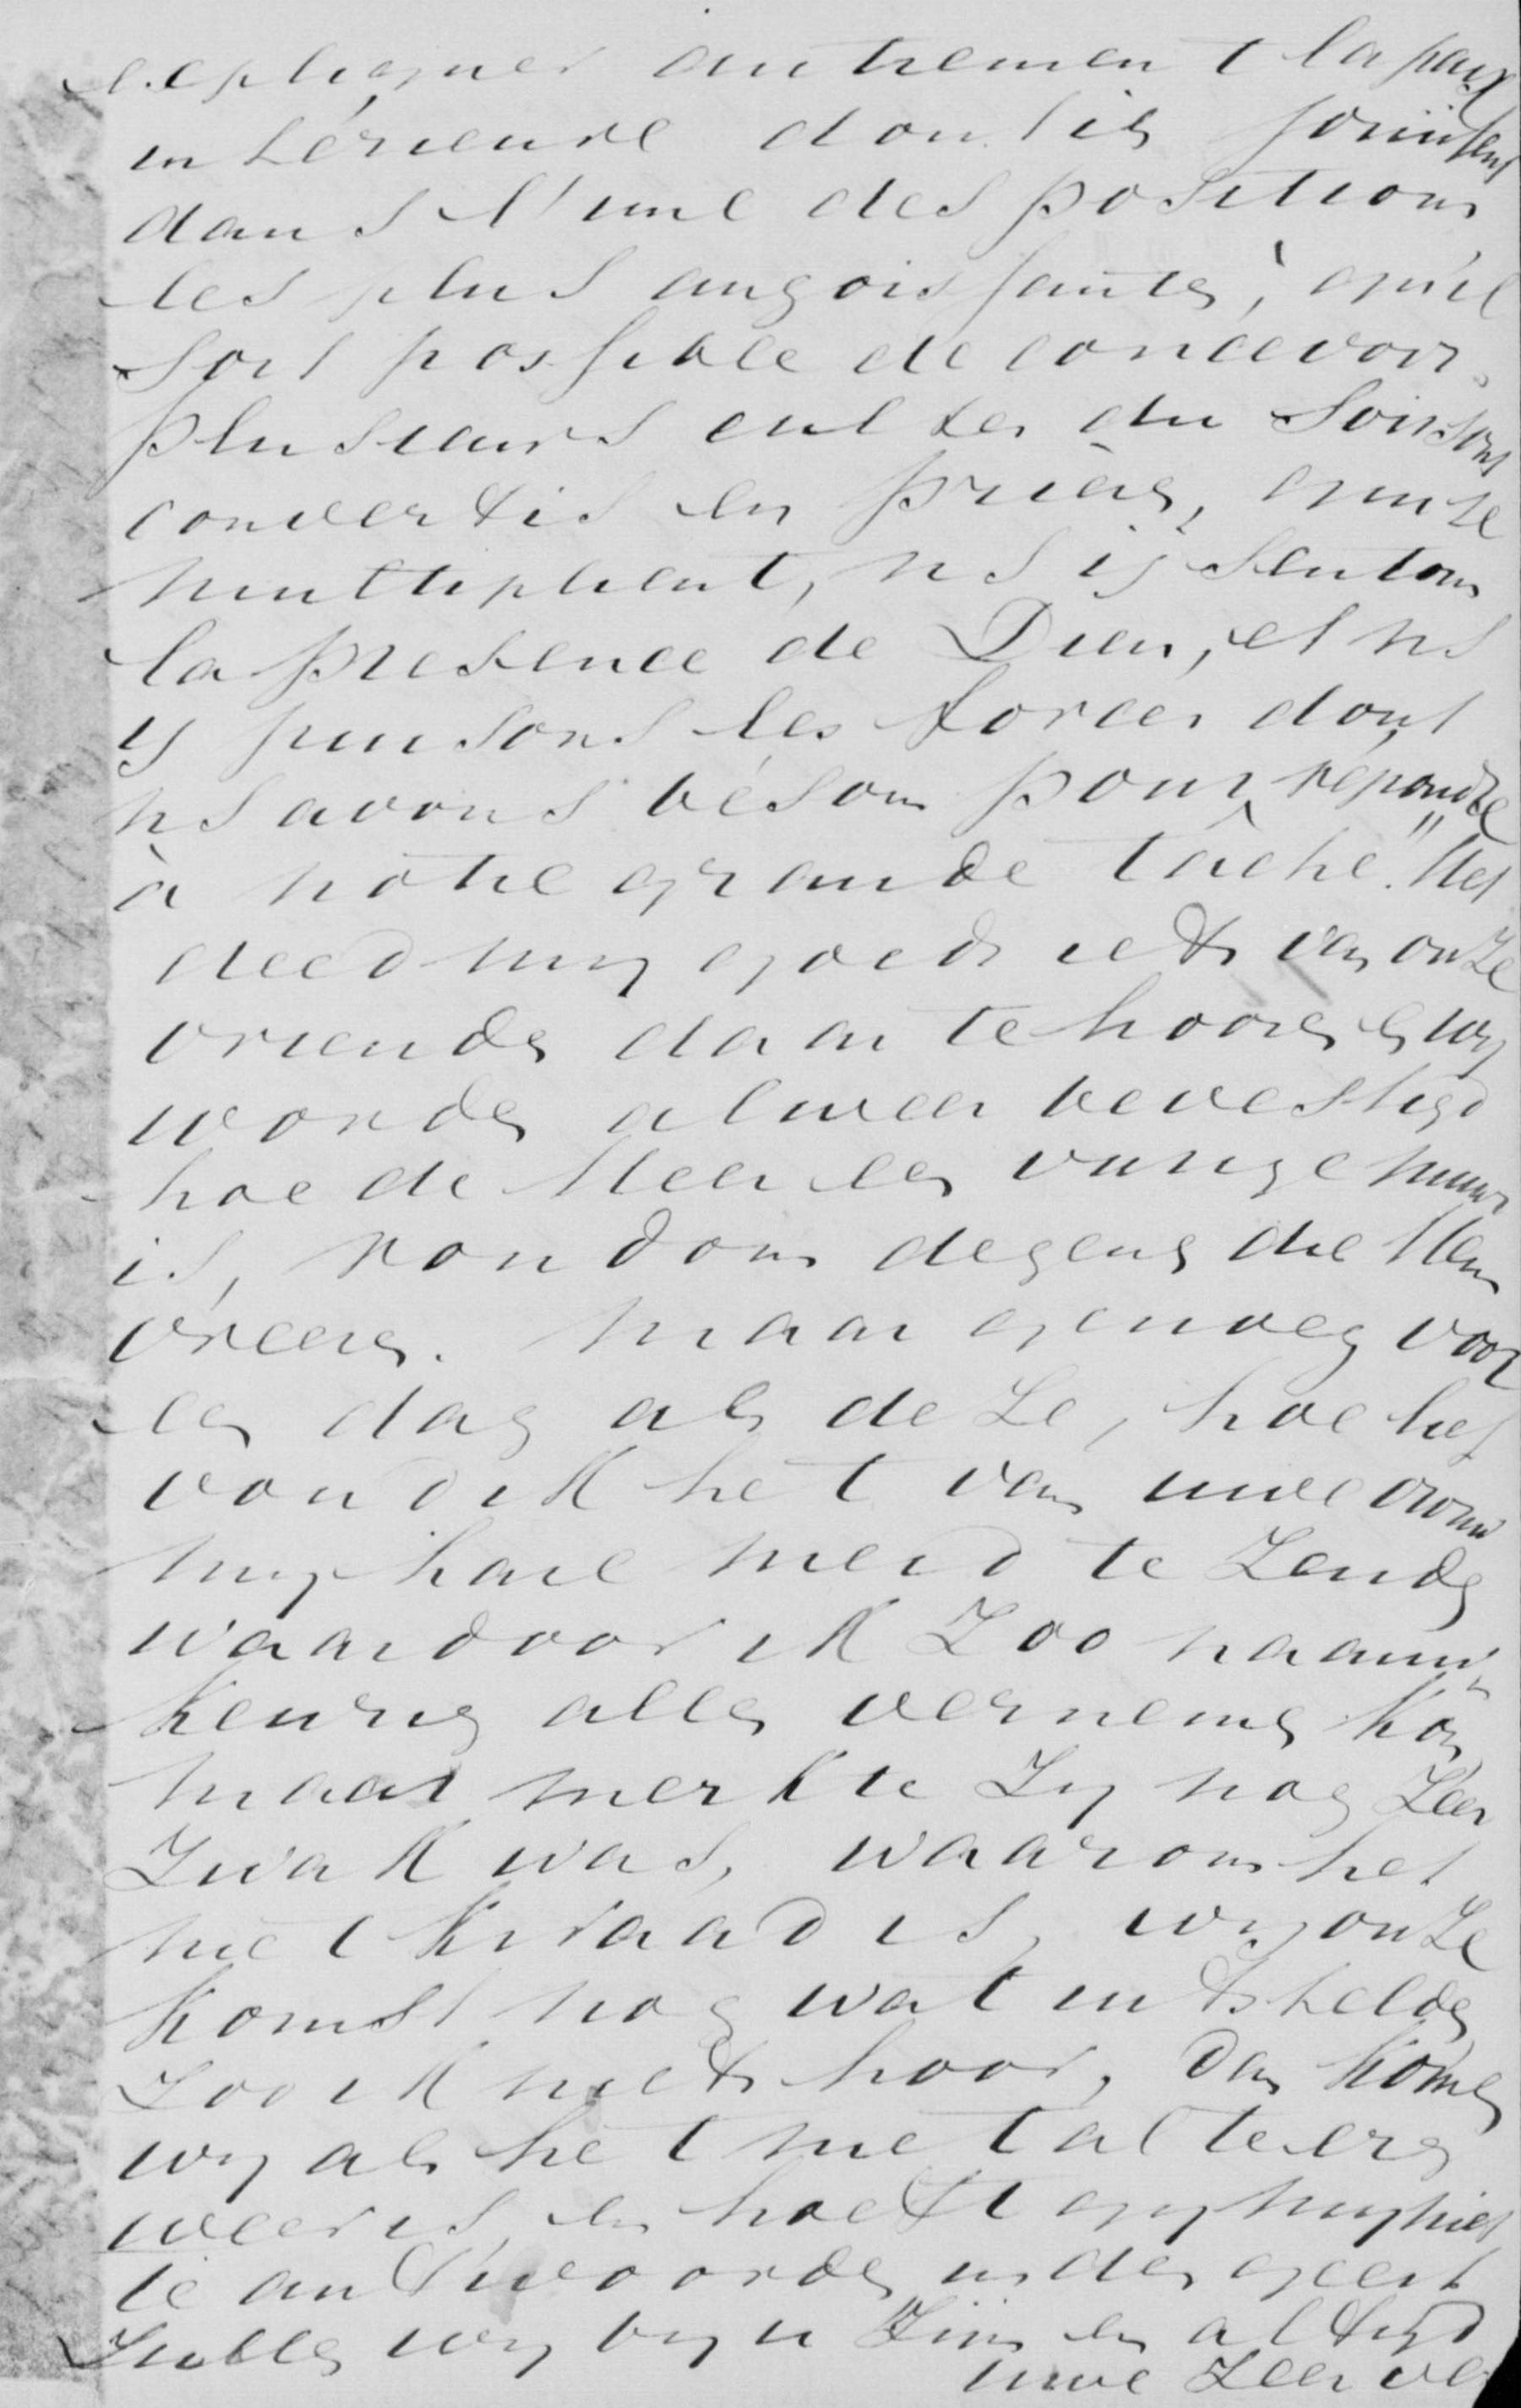 expliquer autrement la paix
intérieure dont ils jouissent
dans l'une des positions
les plus angoissantes, qu'il
soit possible de concevoir.
Plusieurs cultes du Soir sont
convertis en prières, qui se
multiplient, ns ÿ sentons
la présence de Dieu, et ns
y puisons les forces dont
ns avons bésoin pour répondre
à nôtre grande tâche." Het
deed mij goed iets van onze
vrienden daar te hooren en wij
worden alweer bevestigd
hoe de Heer een vurige muur
is, rondom degenen die Hem
vreezen. Maar genoeg voor
een dag als deze, hoe lief
vond ik het van uwe vrouw
mij hare meid te zenden
waardoor ik zoo naauw-
keurig alles vernemen kon
maar merkte zij nog zeer
zwak was, waarom het
niet kwaad is, wij onze
komst nog wat uitstelden
zoo ik niets hoor, dan komen
wij als het niet al te erg
weer is, en hoeft gij mij niet
te antwoorden in den geest
zullen wij bij u zijn en altijd
uwe zeer ve